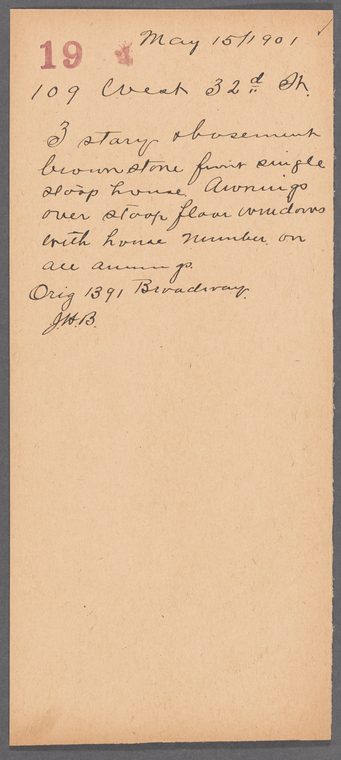 19 May 15/1901
109 West 32d St.
3 story & basement
brown stone front single
stoop house. Awnings
over stoop floor windows
with house number on
all awnings.
Orig 1391 Broadway.
J.H.B.